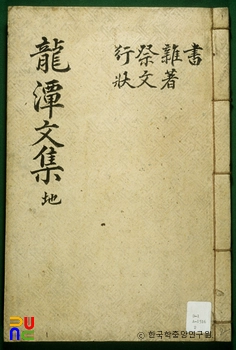 書
雜著
祭文
行狀
龍潭文集 地
ⓒ한국학중앙연구원